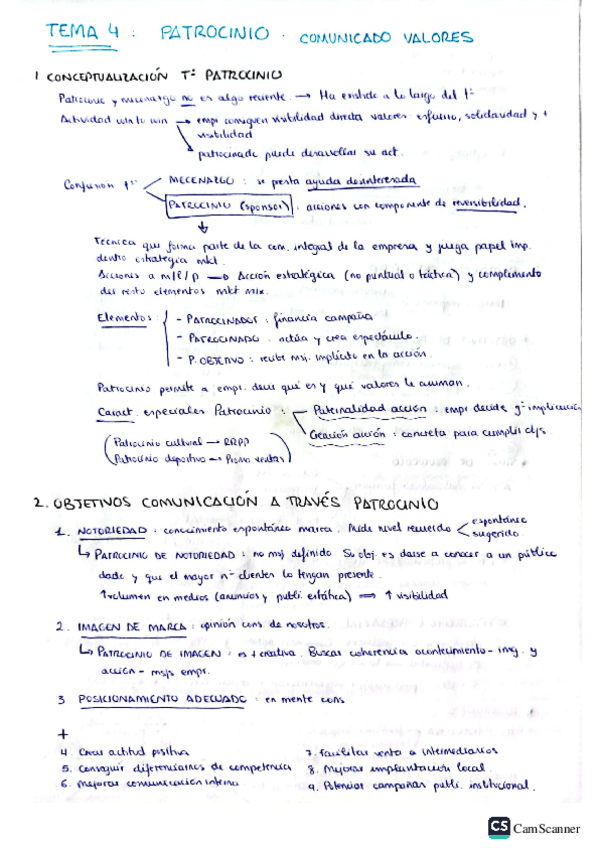 TEMA 4 : PATROCINIO · COMUNICADO VALORES
1 CONCEPTUALIZACIÓN Tª PATROCINIO
Patrocinio y mecenazgo no es algo reciente → Ha existido a lo largo del tº
Actividad win to win → empr consiguen visibilidad directa valores esfuerzo, solidaridad y +
visibilidad
patrocinado puede desarrollar su act.
Confusión
MECENAZGO : se presta ayuda desinteresada
PATROCINIO (sponsor) : acciones con componente de reversibilidad.
Técnica que forma parte de la com. integral de la empresa y juega papel imp.
dentro estrategia mkt.
Acciones a m/l/p → Acción estratégica (no puntual o táctica) y complemento
del resto elementos mkt mix.
Elementos :
- PATROCINADOR : financia campaña
- PATROCINADO : actúa y crea espectáculo.
- P. OBJETIVO : recibe msj. implícito en la acción.
Patrocinio permite a empr. decir qué es y qué valores le animan.
Caract. especiales Patrocinio :
Paternalidad acción : empr decide gº implicación
Creación acción : concreta para cumplir objs
(Patrocinio cultural → RRPP
Patrocinio deportivo → Promo ventas)
2. OBJETIVOS COMUNICACIÓN A TRAVÉS PATROCINIO
1. NOTORIEDAD : conocimiento espontáneo marca. Mide nivel recuerdo
espontáneo
sugerido.
↳ PATROCINIO DE NOTORIEDAD : no msj definido. Su obj. es darse a conocer a un público
dado y que el mayor nº clientes lo tengan presente.
↑volumen en medios (anuncios y publi. estática) ⟹ ↑ visibilidad
2. IMAGEN DE MARCA : opinión cons. de nosotros.
↳ PATROCINIO DE IMAGEN : es + creativa. Buscar coherencia acontecimiento - img. y
acción - msjs empr.
3 POSICIONAMIENTO ADECUADO : en mente cons.
+
4. Crear actitud positiva
5. Conseguir diferenciarnos de competencia
6. Mejorar comunicación interna
7. Facilitar venta a intermediarios
8. Mejorar implantación local.
9. Potenciar campañas publi. institucional.
CS CamScanner